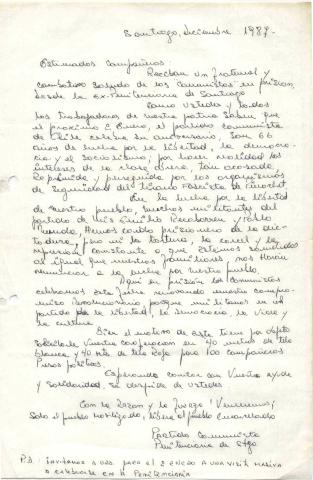 Santiago, diciembre 1987.
Estimados Compañeros
Reciban un fraternal y
combativo saludo de los Comunistas en prisión,
desde la ex-Penitenciaria de Santiago
Como ustedes y todos
los trabajadores de nuestra patria saben que
el próximo 2 Enero, el partido comunista
de Chile celebra su aniversario, son 66
años de lucha por la libertad, la democra-
cia y el socialismo; por hacer realidad los
intereses de la clase obrera, tan acosada
reprimida y perseguida por los organismos
de seguridad del tirano fascista de Pinochet
En la lucha por la libertad
de nuestro pueblo, muchos militantes del
partido de Luis Emilio Recabarren y Pablo
Neruda, hemos caído prisionero de la dic-
tadura, pero ni la tortura, la carcel y la
represión constante a que estamos sometidos
al igual que nuestros familiares, nos harán
renunciar a la lucha por nuestro pueblo.
Aquí en prisión los comunistas
celebramos este aniv. renovando nuestro compro-
miso Revolucionario, porque militamos en el
partido de la libertad, la democracia, la vida y
la cultura.
Bien el motivo de esta tiene por objeto
solicitarle vuestra cooperación en 40 metros de tela
blanca, y 40 mts. de tela roja para 100 compañeros
Presos políticos.
Esperando contar con vuestra ayuda
y solidaridad, se despide de ustedes
Con la Razón y la fuerza! Venceremos!
Solo el pueblo movilizado, libera al pueblo encarcelado
Partido Comunista
Penitenciaria de Stgo
P.D: INVITAMOS A UDS. PARA EL 2 ENERO A UNA VISITA MASIVA
A CELEBRARSE EN LA PENITENCIARIA